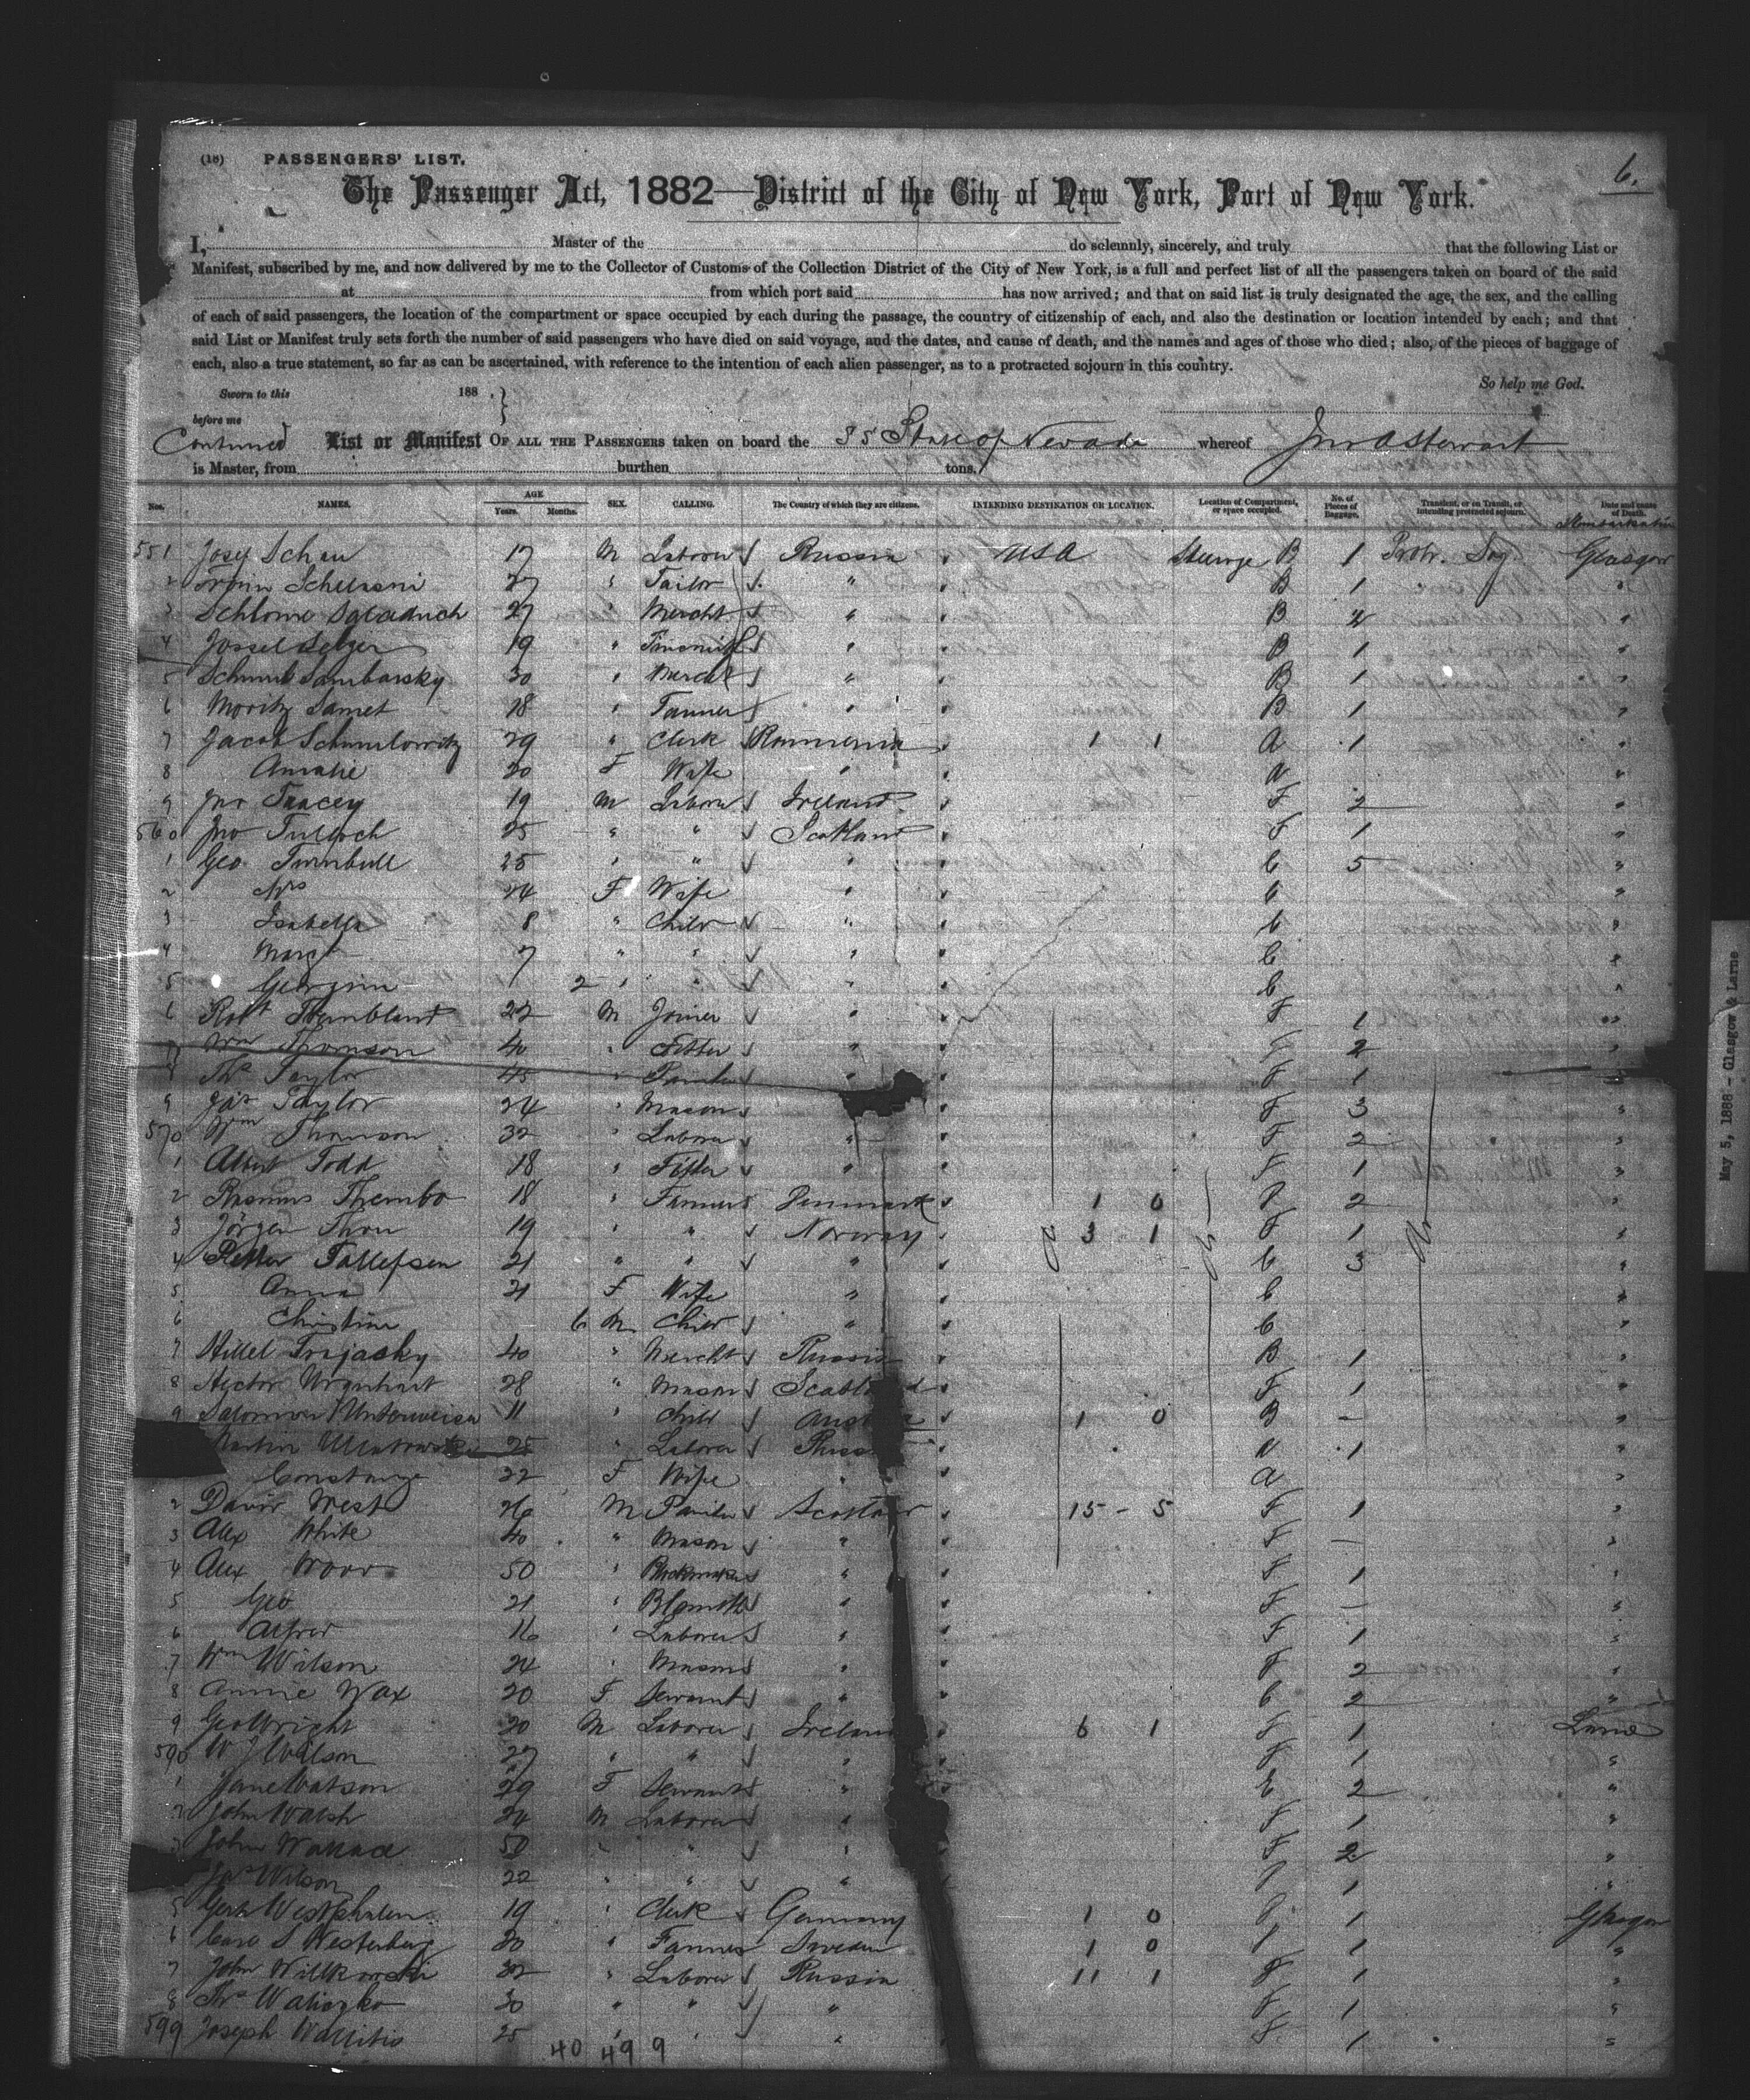 (18) PASSENGERS' LIST. 6.
The Passenger Act, 1882—District of the City of New York, Port of New York.
I, Master of the do solemnly, sincerely, and truly that the following List or
Manifest, subscribed by me, and now delivered by me to the Collector of Customs of the Collection District of the City of New York, is a full and perfect list of all the passengers taken on board of the said
at from which port said has now arrived; and that on said list is truly designated the age, the sex, and the calling
of each of said passengers, the location of the compartment or space occupied by each during the passage, the country of citizenship of each, and also the destination or location intended by each; and that
said List or Manifest truly sets forth the number of said passengers who have died on said voyage, and the dates, and cause of death, and the names and ages of those who died; also, of the pieces of baggage of
each, also a true statement, so far as can be ascertained, with reference to the intention of each alien passenger, as to a protracted sojourn in this country.
So help me God.
Sworn to this 188 .}
before me
Continued List or Manifest OF ALL THE PASSENGERS taken on board the SS State of Nevada whereof Jno A Stewart
is Master, from burthen tons.
Nos. NAMES. AGE Years. Months. SEX. CALLING. The Country of which they are citizens. INTENDING DESTINATION OR LOCATION. Location of Compartment, or space occupied. No. of Pieces of Baggage. Transient, or on Transit, or intending protracted sojourn. Date and cause of Death.
551 Josef 17 M Laborer Russia " USA Steerage B 1 Protr. Soj. Glasgow
2 27 " Tailor " " B 1 "
3 Schlome 27 Mercht " " B 2 "
4 Jossel Selzer 19 " Tinsmith " " B 1 "
5 Sambarsky 30 " Mercht " " B 1 "
6 Moritz Samet 18 " Tanner " " B 1 "
7 Jacob Schmulowitz 29 " Clerk Roumenia " 1 1 A 1 "
8 Amalie 20 F Wife " " A "
9 Jno Tracey 19 M Labour Ireland " F 2 "
560 Jno Tulloch 25 " " Scotland " F 1 "
1 Geo Turnbull 25 " " " " C 5 "
2 Mrs 24 F Wife " " C "
3 Isabella 8 " Child " " C "
4 Margt 7 " " " " C "
5 Georgina 2 " " " " C "
6 Robt 22 M Joiner " " F 1 "
7 Wm Thomson 40 " Fitter " " F 2 "
8 Ths Taylor 45 " " F 1 "
9 Jas Taylor 24 " Mason " F 3 "
570 Wm Thomson 32 " Laborer " " F 2 "
1 Albert Todd 18 " Fitter " " F 1 "
2 Rasmus Thembo 18 " Farmer Denmark " 1 0 F 2 "
3 Jörgen 19 " " Norway " 3 1 F 1 "
4 Tallefsen 21 " " " " C 3 "
5 Anna 21 F Wife " " C "
6 Christine 6 M Child " " C "
7 Hillel Trajasky 40 " Mercht Russia " B 1 "
8 Hector Urquhart 28 " Mason Scotland " F 1 "
9 Salomon Unterweiser 11 " Child Austria " 1 0 B — "
Martin 25 " Laborer Russ " A 1 "
Constanze 22 F Wife " " A "
2 David West 26 M Scotland " 15 - 5 F 1 "
3 Alex White 40 " Mason " " F — "
4 Alex Wood 50 " " " F 1 "
5 Geo 21 " Blsmith " " F — "
6 Alfred 16 " Laborer " " F 1 "
7 Wm Wilson 24 " Mason " " F 2 "
8 Annie Wax 20 F Servant " " C 2 "
9 Geo Wright 20 M Laborer Ireland " 6 1 F 1 Larne
590 W J Wilson 27 " " " " F 1 "
1 Jane Watson 29 F Servant " " E 2 "
2 John Walsh 24 M Laborer " " F 1 "
3 John Wallace 50 " " " F 2 "
Jas Wilson 22 " " " F 1 "
5 Westphalen 19 " Clerk Germany 1 0 F 1 Glasgow
6 Carl S Westerberg 20 " Farmer Sweden 1 0 F 1 "
7 John Willkowski 32 " Laborer Russia 11 1 F 1 "
8 Ths Waliczko 30 " " " F 1 "
599 Joseph 25 " " " F 1 "
40 49 9
May 5, 1888 - Glasgow & Larne